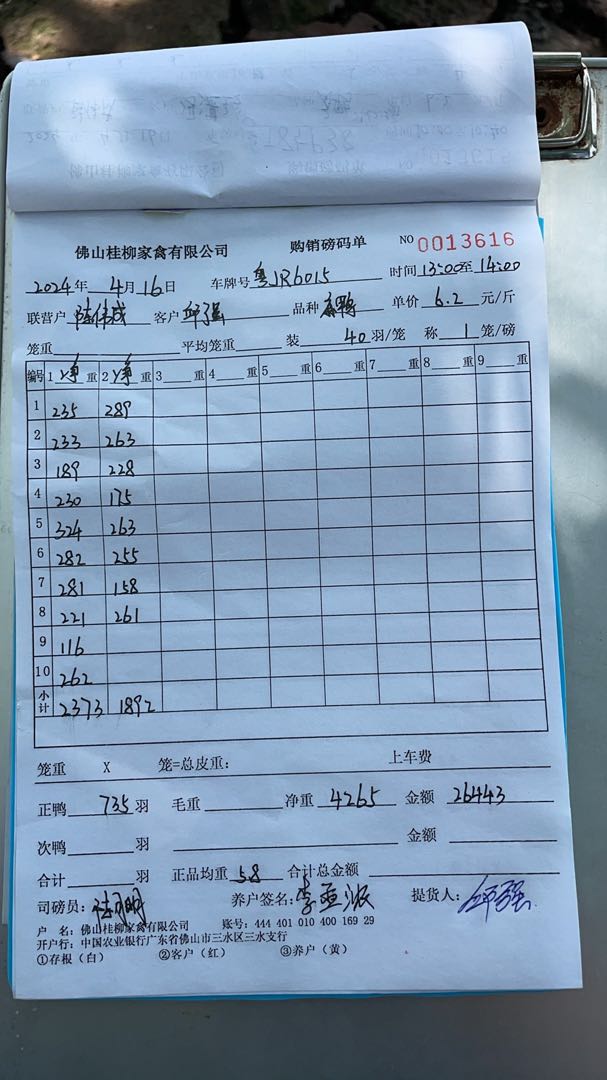 佛山桂柳家禽有限公司 购销磅码单 NO 0013616
2024年 4月16日 车牌号 粤JR6015 时间 13:00至 14:00
联营户 陆伟成 客户 邱强 品种 单价 6.2 元/斤
笼重 平均笼重 装 40 羽/笼 称 1 笼/磅
编号 1 净 重 2 净 重 3 重 4 重 5 重 6 重 7 重 8 重 9 重
1 235 289
2 233 263
3 189 228
4 230 175
5 324 263
6 282 255
7 281 158
8 221 261
9 116
10 262
小计 2373 1892
笼重 X 笼=总皮重: 上车费
正鸭 735 羽 毛重 净重 4265 金额 26443
次鸭 羽 金额
合计 羽 正品均重 5.8 合计总金额
司磅员: 养户签名: 提货人: 邱强
户 名: 佛山桂柳家禽有限公司 账号: 444 401 010 400 169 29
开户行: 中国农业银行广东省佛山市三水区三水支行
①存根(白) ②客户(红) ③养户(黄)